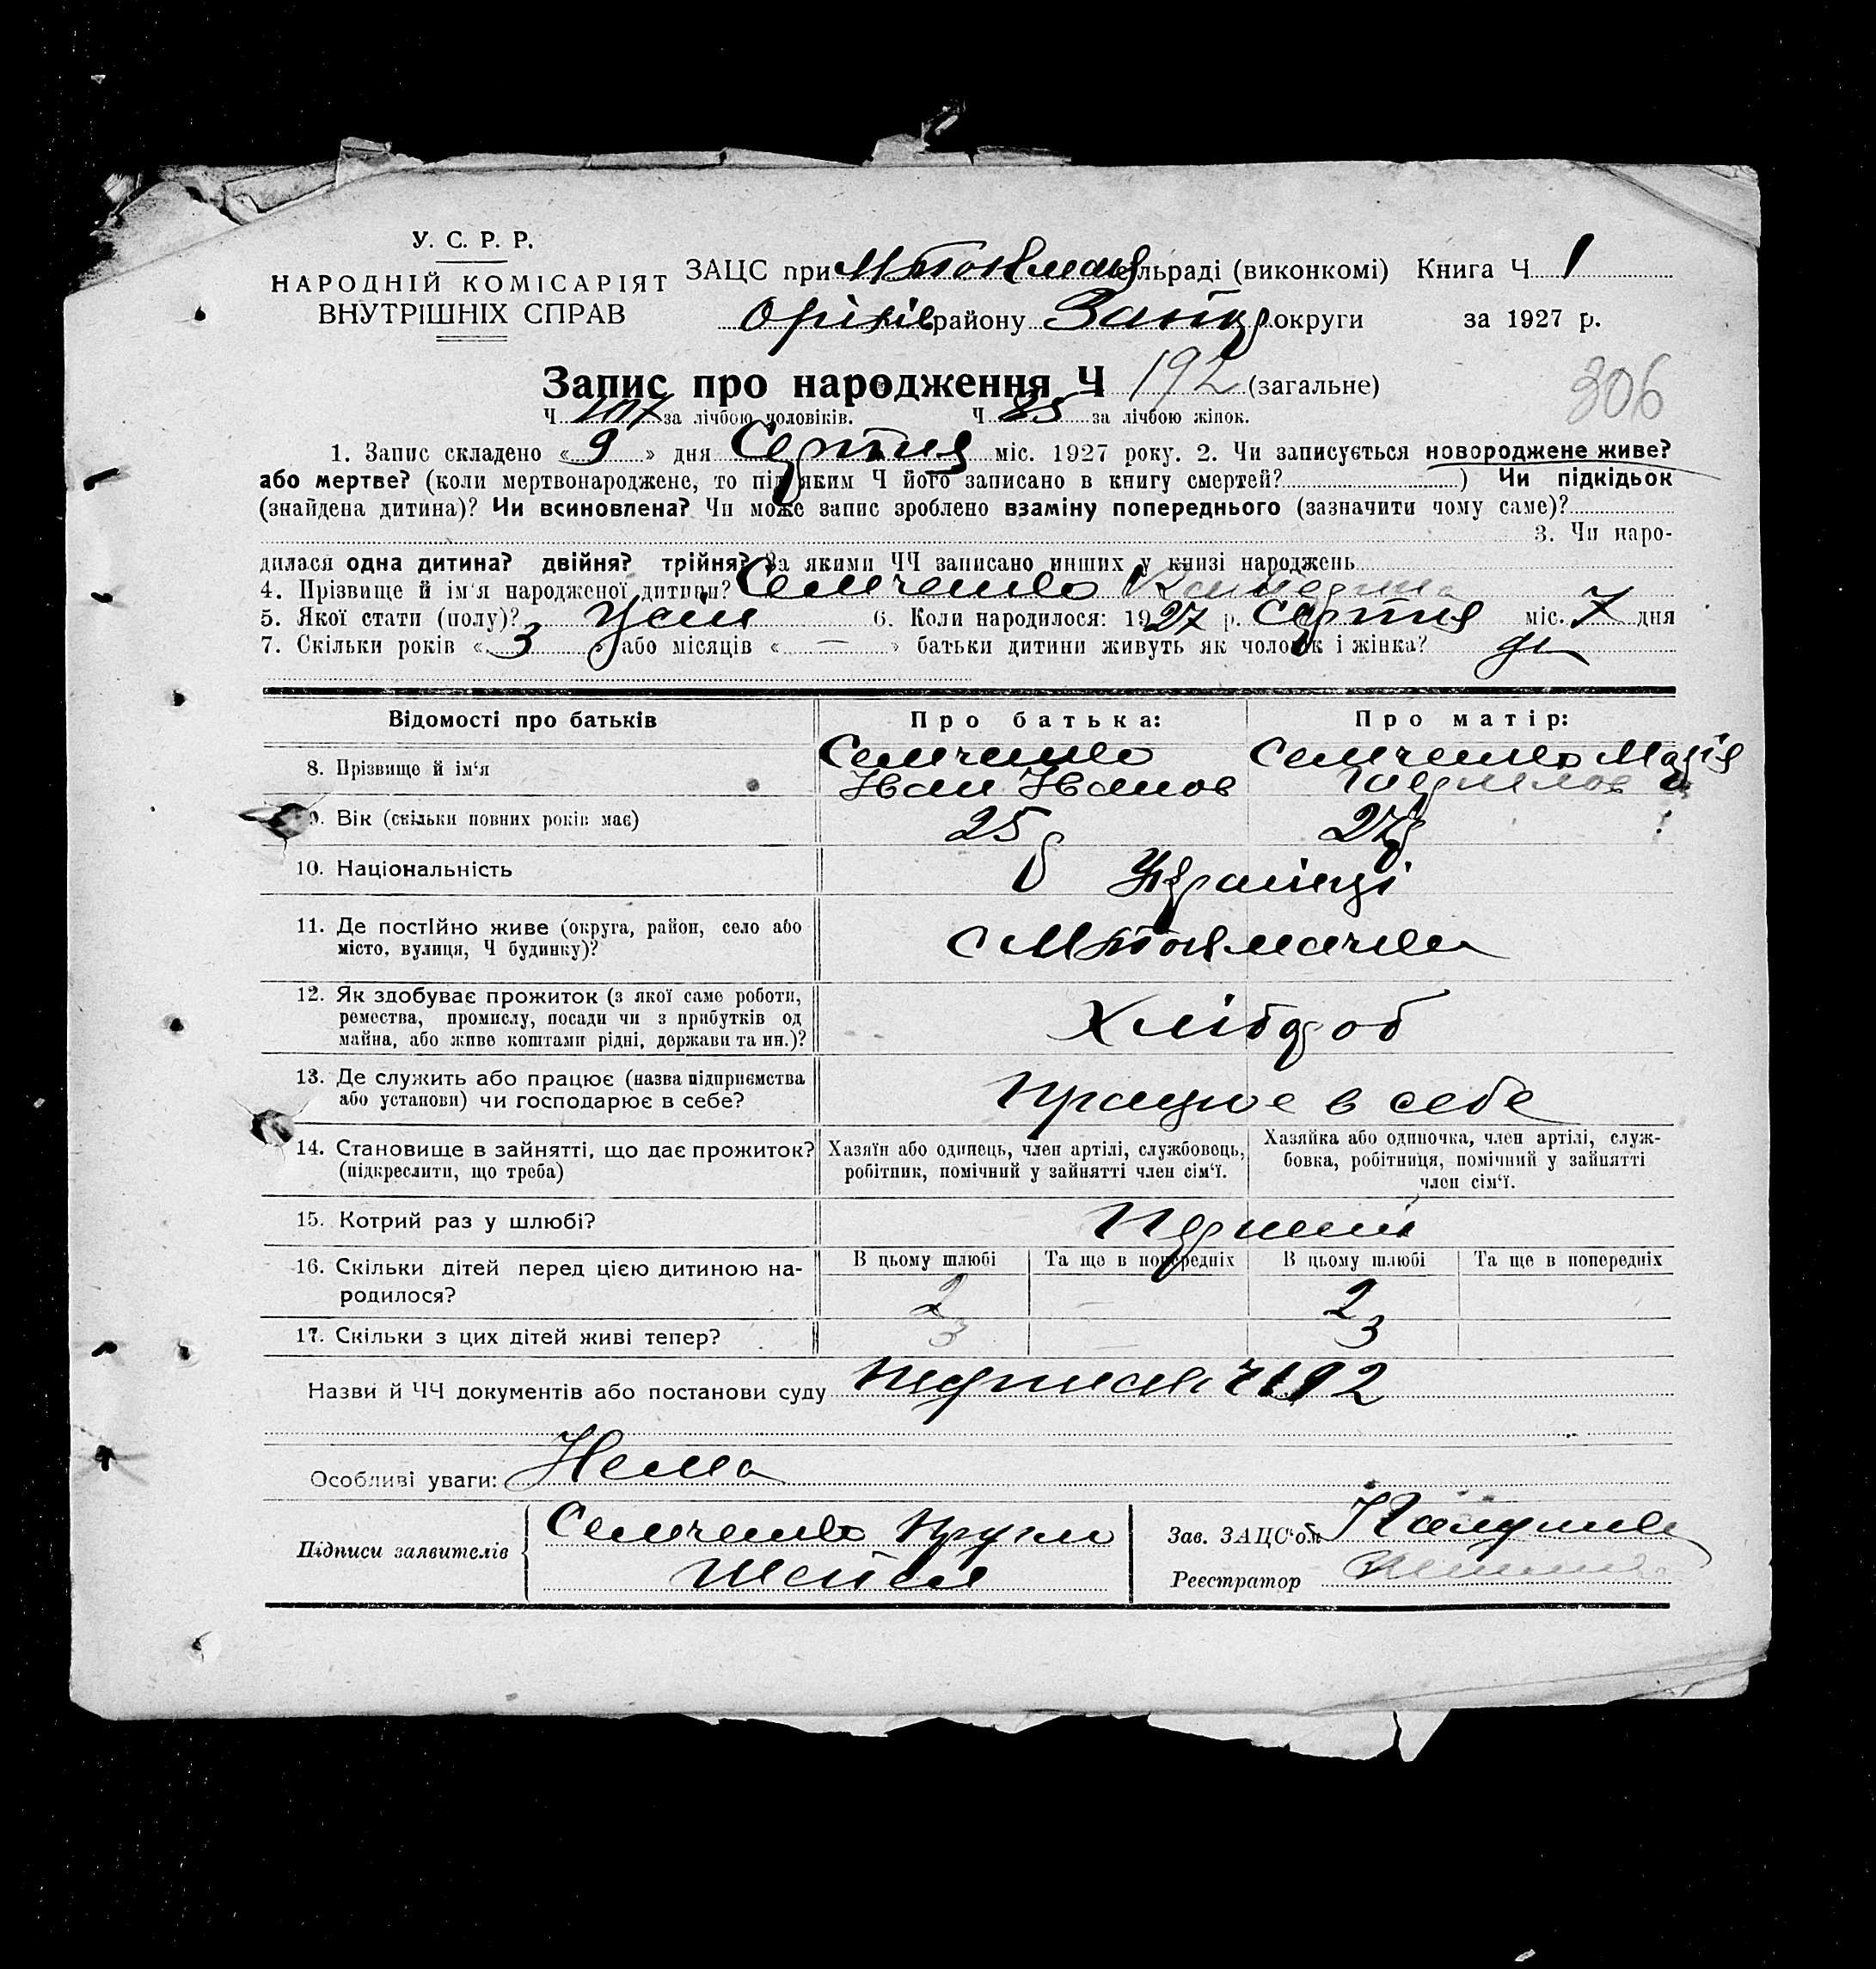 У. С. Р. Р.
НАРОДНІЙ КОМІСАРІЯТ
ВНУТРІШНІХ СПРАВ
ЗАЦС при М Токмац сільраді (виконкомі) Книга Ч 1
Оріхів району Запор округи за 1927 р.
Запис про народження Ч 192 (загальне)
306
Ч 107 за лічбою чоловіків. Ч 85 за лічбою жінок.
1. Запис складено « 9 » дня Серпня міс. 1927 року. 2. Чи записується новороджене живе?
або мертве? (коли мертвонароджене, то під яким Ч його записано в книгу смертей? ) Чи підкідьок
(знайдена дитина)? Чи всиновлена? Чи може запис зроблено взаміну попереднього (зазначити чому саме)?
3. Чи наро-
дилася одна дитина? двійня? трійня? За якими ЧЧ записано инших у книзі народжень
4. Прізвище й ім'я народженої дитини? Семченко Катерина
5. Якої стати (полу)? Жін 6. Коли народилося: 1927 р. Серпня міс. 7 дня
7. Скільки років « 3 » або місяців « — » батьки дитини живуть як чоловік і жінка?
Відомості про батьків
Про батька:
Про матір:
8. Прізвище й ім'я
Семченко
Іван Іванов
Семченко Марія
9. Вік (скільки повних років має)
25 р
27 р
10. Національність
Українці
11. Де постІйно живе (округа, район, село або
місто, вулиця, Ч будинку)?
с М Токмачка
12. Як здобуває прожиток (з якої саме роботи,
ремества, промислу, посади чи з прибутків од
майна, або живе коштами рідні, держави та ин.)?
Хлібороб
13. Де служить або працює (назва підприємства
або установи) чи господарює в себе?
працює в себе
14. Становище в зайнятті, що дає прожиток?
(підкреслити, що треба)
Хазяїн або одинець, член артілі, службовець,
робітник, помічний у зайнятті член сім'ї.
Хазяйка або одиночка, член артілі, служ-
бовка, робітниця, помічний у зайнятті
член сім'ї.
15. Котрий раз у шлюбі?
Перший
16. Скільки дітей перед цією дитиною на-
родилося?
В цьому шлюбі
Та ще в попередніх
В цьому шлюбі
Та ще в попередніх
2 —
2
17. Скільки з цих дітей живі тепер?
3 —
3
Назви й ЧЧ документів або постанови суду Ч 192
Особливі уваги: Нема
Підписи заявителів
Семченко
Зав. ЗАЦС'ом
Реєстратор